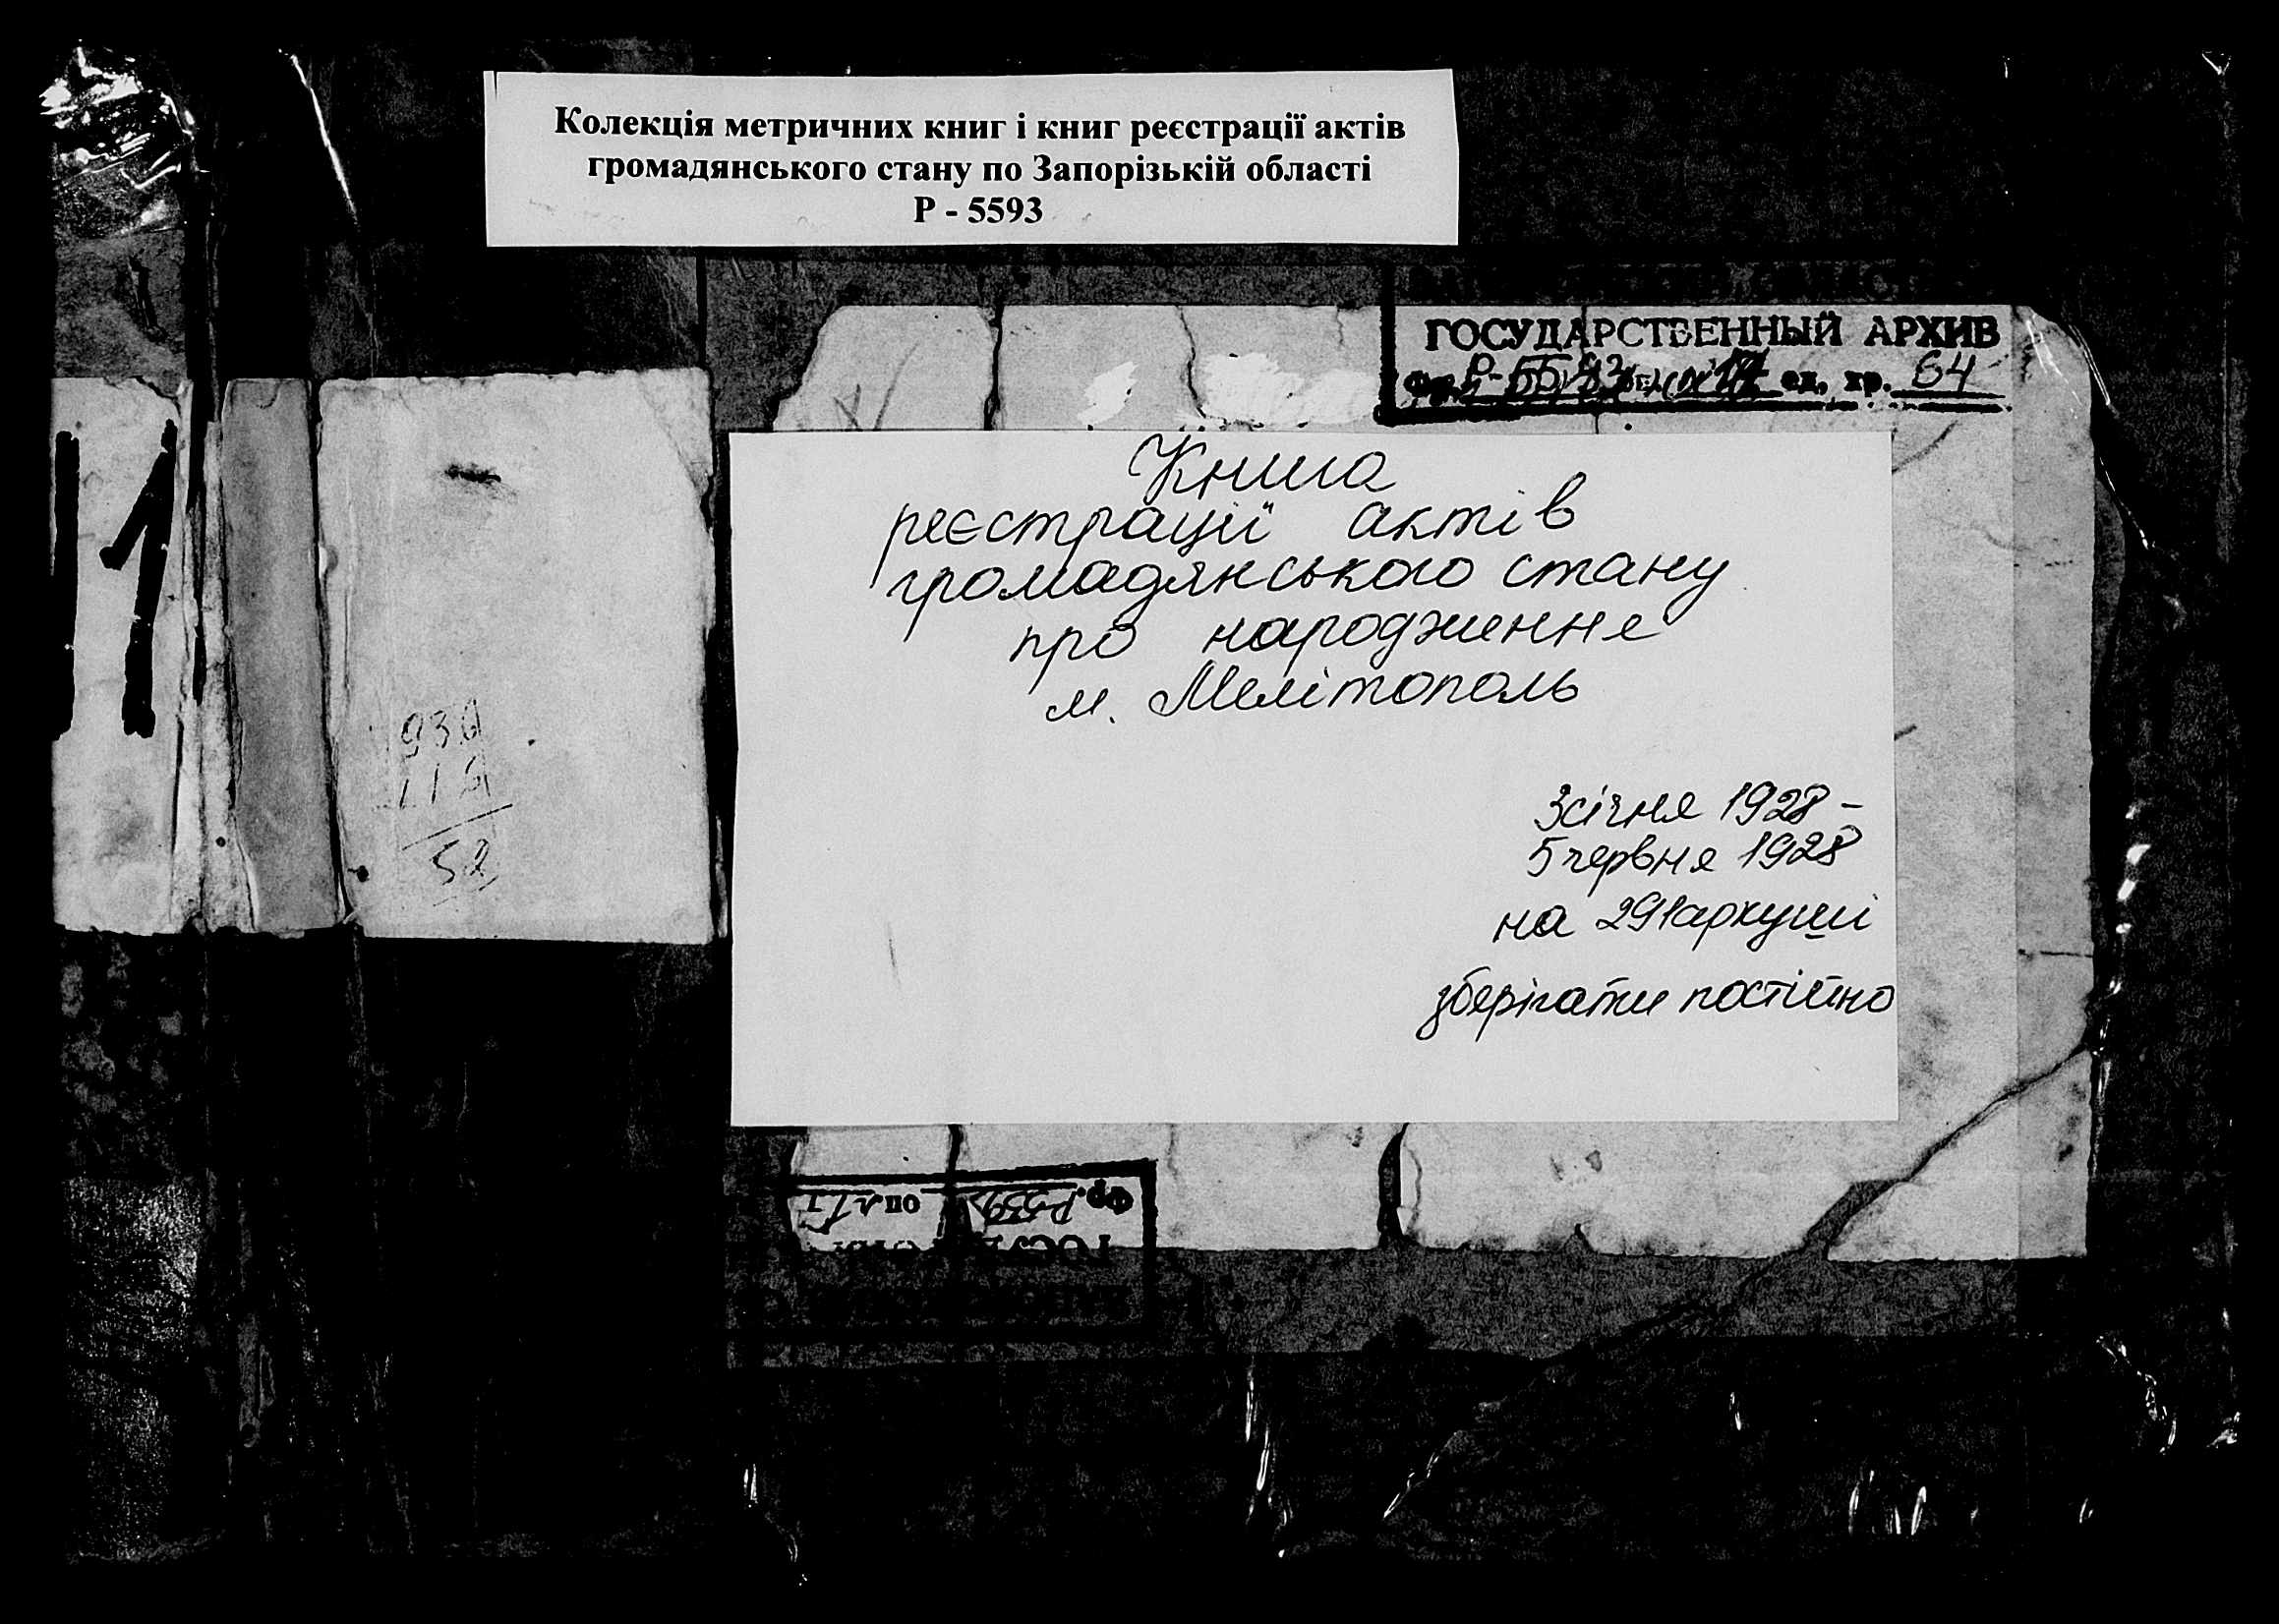 Колекція метричних книг і книг реєстрації актів
громадянського стану по Запорізькій області
Р - 5593
ГОСУДАРСТВЕННЫЙ АРХИВ
Р-5593 ед. хр. 64
Книга
реєстрації актів
громадянського стану
про народження
м. Мелітополь
3 січня 1928 -
5 червня 1928
на 291 аркуші
зберігати постійно
11
52
Фр. Р-559 оп.